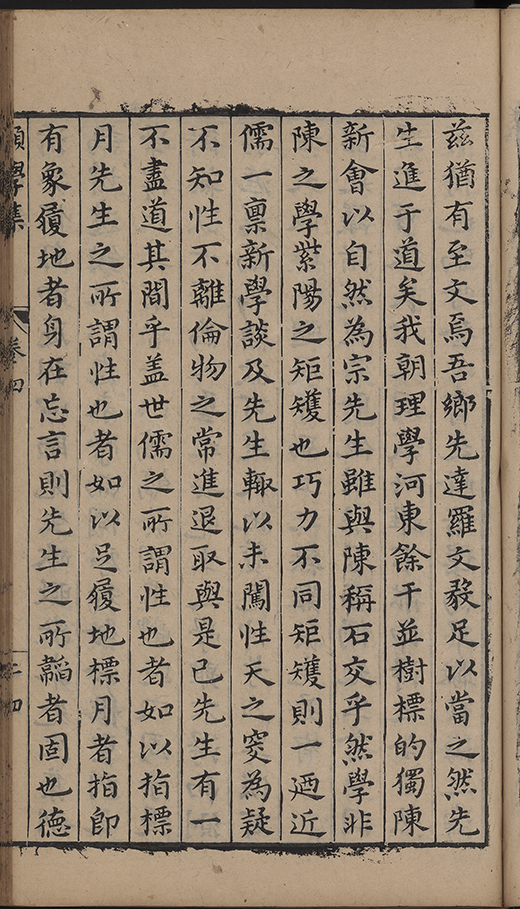 茲猶有至文焉吾鄉先達羅文毅足以當之然先
生進于道矣我朝理學河東餘干並樹標的獨陳
新會以自然為宗先生雖與陳稱石交乎然學非
陳之學紫陽之矩矱也巧力不同矩矱則一迺近
儒一禀新學談及先生輙以未闖性天之突為疑
不知性不離倫物之常進退取與是已先生有一
不盡道其間乎盖世儒之所謂性也者如以指標
月先生之所謂性也者如以足履地標月者指即
有象履地者身在忘言則先生之所韜者固也德
願學集 卷四